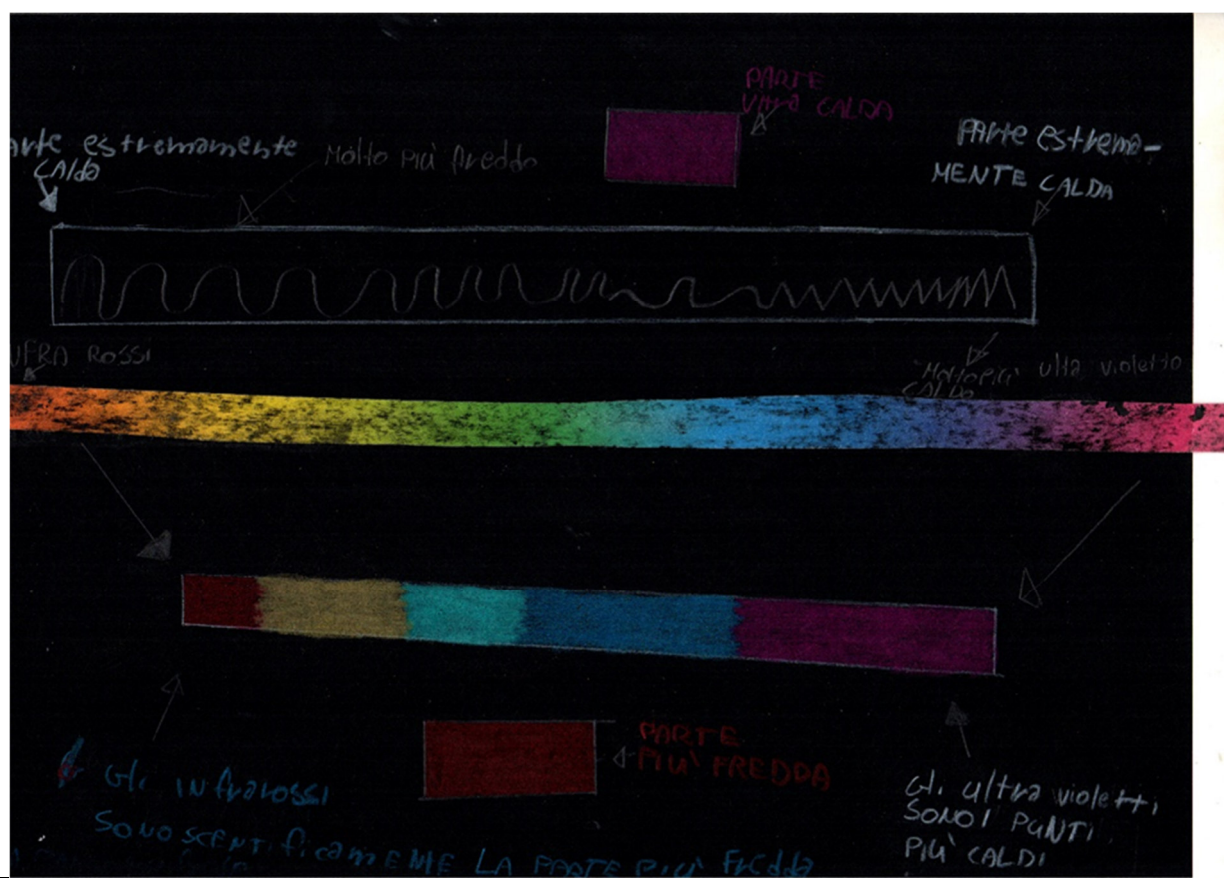 PARTE
Ultra CALDA
arte estremamente
CAlda
Molto più freddo
PARte estrema-
MENTE CALDA
UFRA ROSSI
Molto più ulta violetto
CALDO
PARTE
PIU' FREDDA
Gli INfrarossi
SONO SCENtificamENtE LA PARTE PIU' FREdda
Gli ultra violetti
SONO I PUNTI
PIÙ CALDI